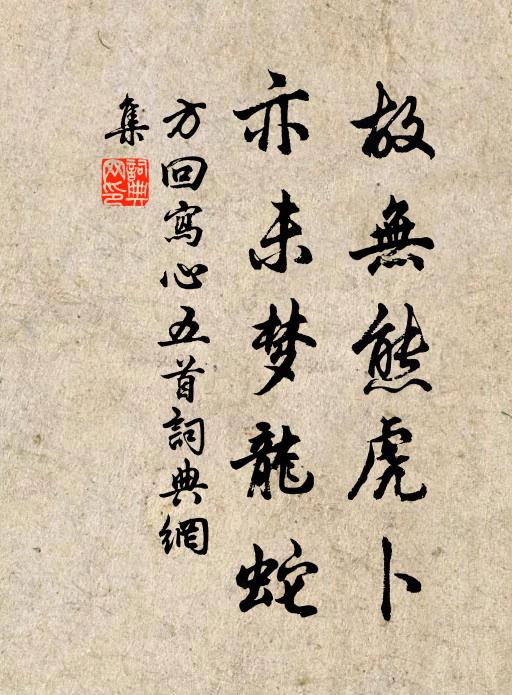 故無熊虎卜
亦未梦龍蛇
方回寫心五首詞典網
集
詞典網印